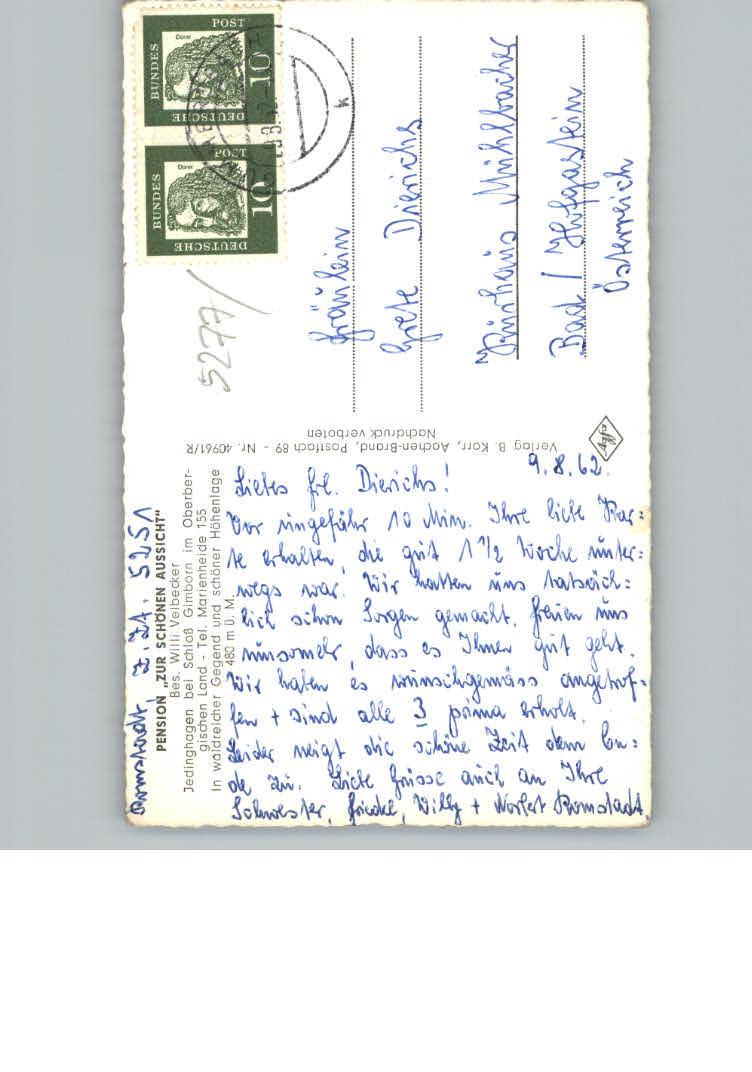 DEUTSCHE
BUNDES
POST
10
Dürer
DEUTSCHE
BUNDES
POST
10
Dürer
5277/
Fräulein
Grete Dierichs
Kurhaus Mühlbacher
Bad / Hofgastein
Österreich
Verlag B. Korr, Aachen-Brand, Postfach 89 - Nr. 40961/R
Nachdruck verboten
Agfa
Romstadt, z. Zt. 5251
PENSION „ZUR SCHÖNEN AUSSICHT"
Bes. Willi Velbecker
Jedinghagen bei Schloß Gimborn im Oberber-
gischen Land - Tel. Marienheide 155
In waldreicher Gegend und schöner Höhenlage
480 m ü. M.
9.8.62.
Liebes Frl. Dierichs!
Vor ungefähr 10 Min. Ihre liebe Kar-
te erhalten, die gut 1 1/2 Woche unter-
wegs war. Wir hatten uns tatsäch-
lich schon Sorgen gemacht. Freuen uns
umsomehr, dass es Ihnen gut geht.
Wir haben es wunschgemäss angetrof-
fen + sind alle 3 prima erholt.
Leider neigt die schöne Zeit dem En-
de zu. Liebe Grüsse auch an Ihre
Schwester, Friedel, Willy + Norbert Romstadt